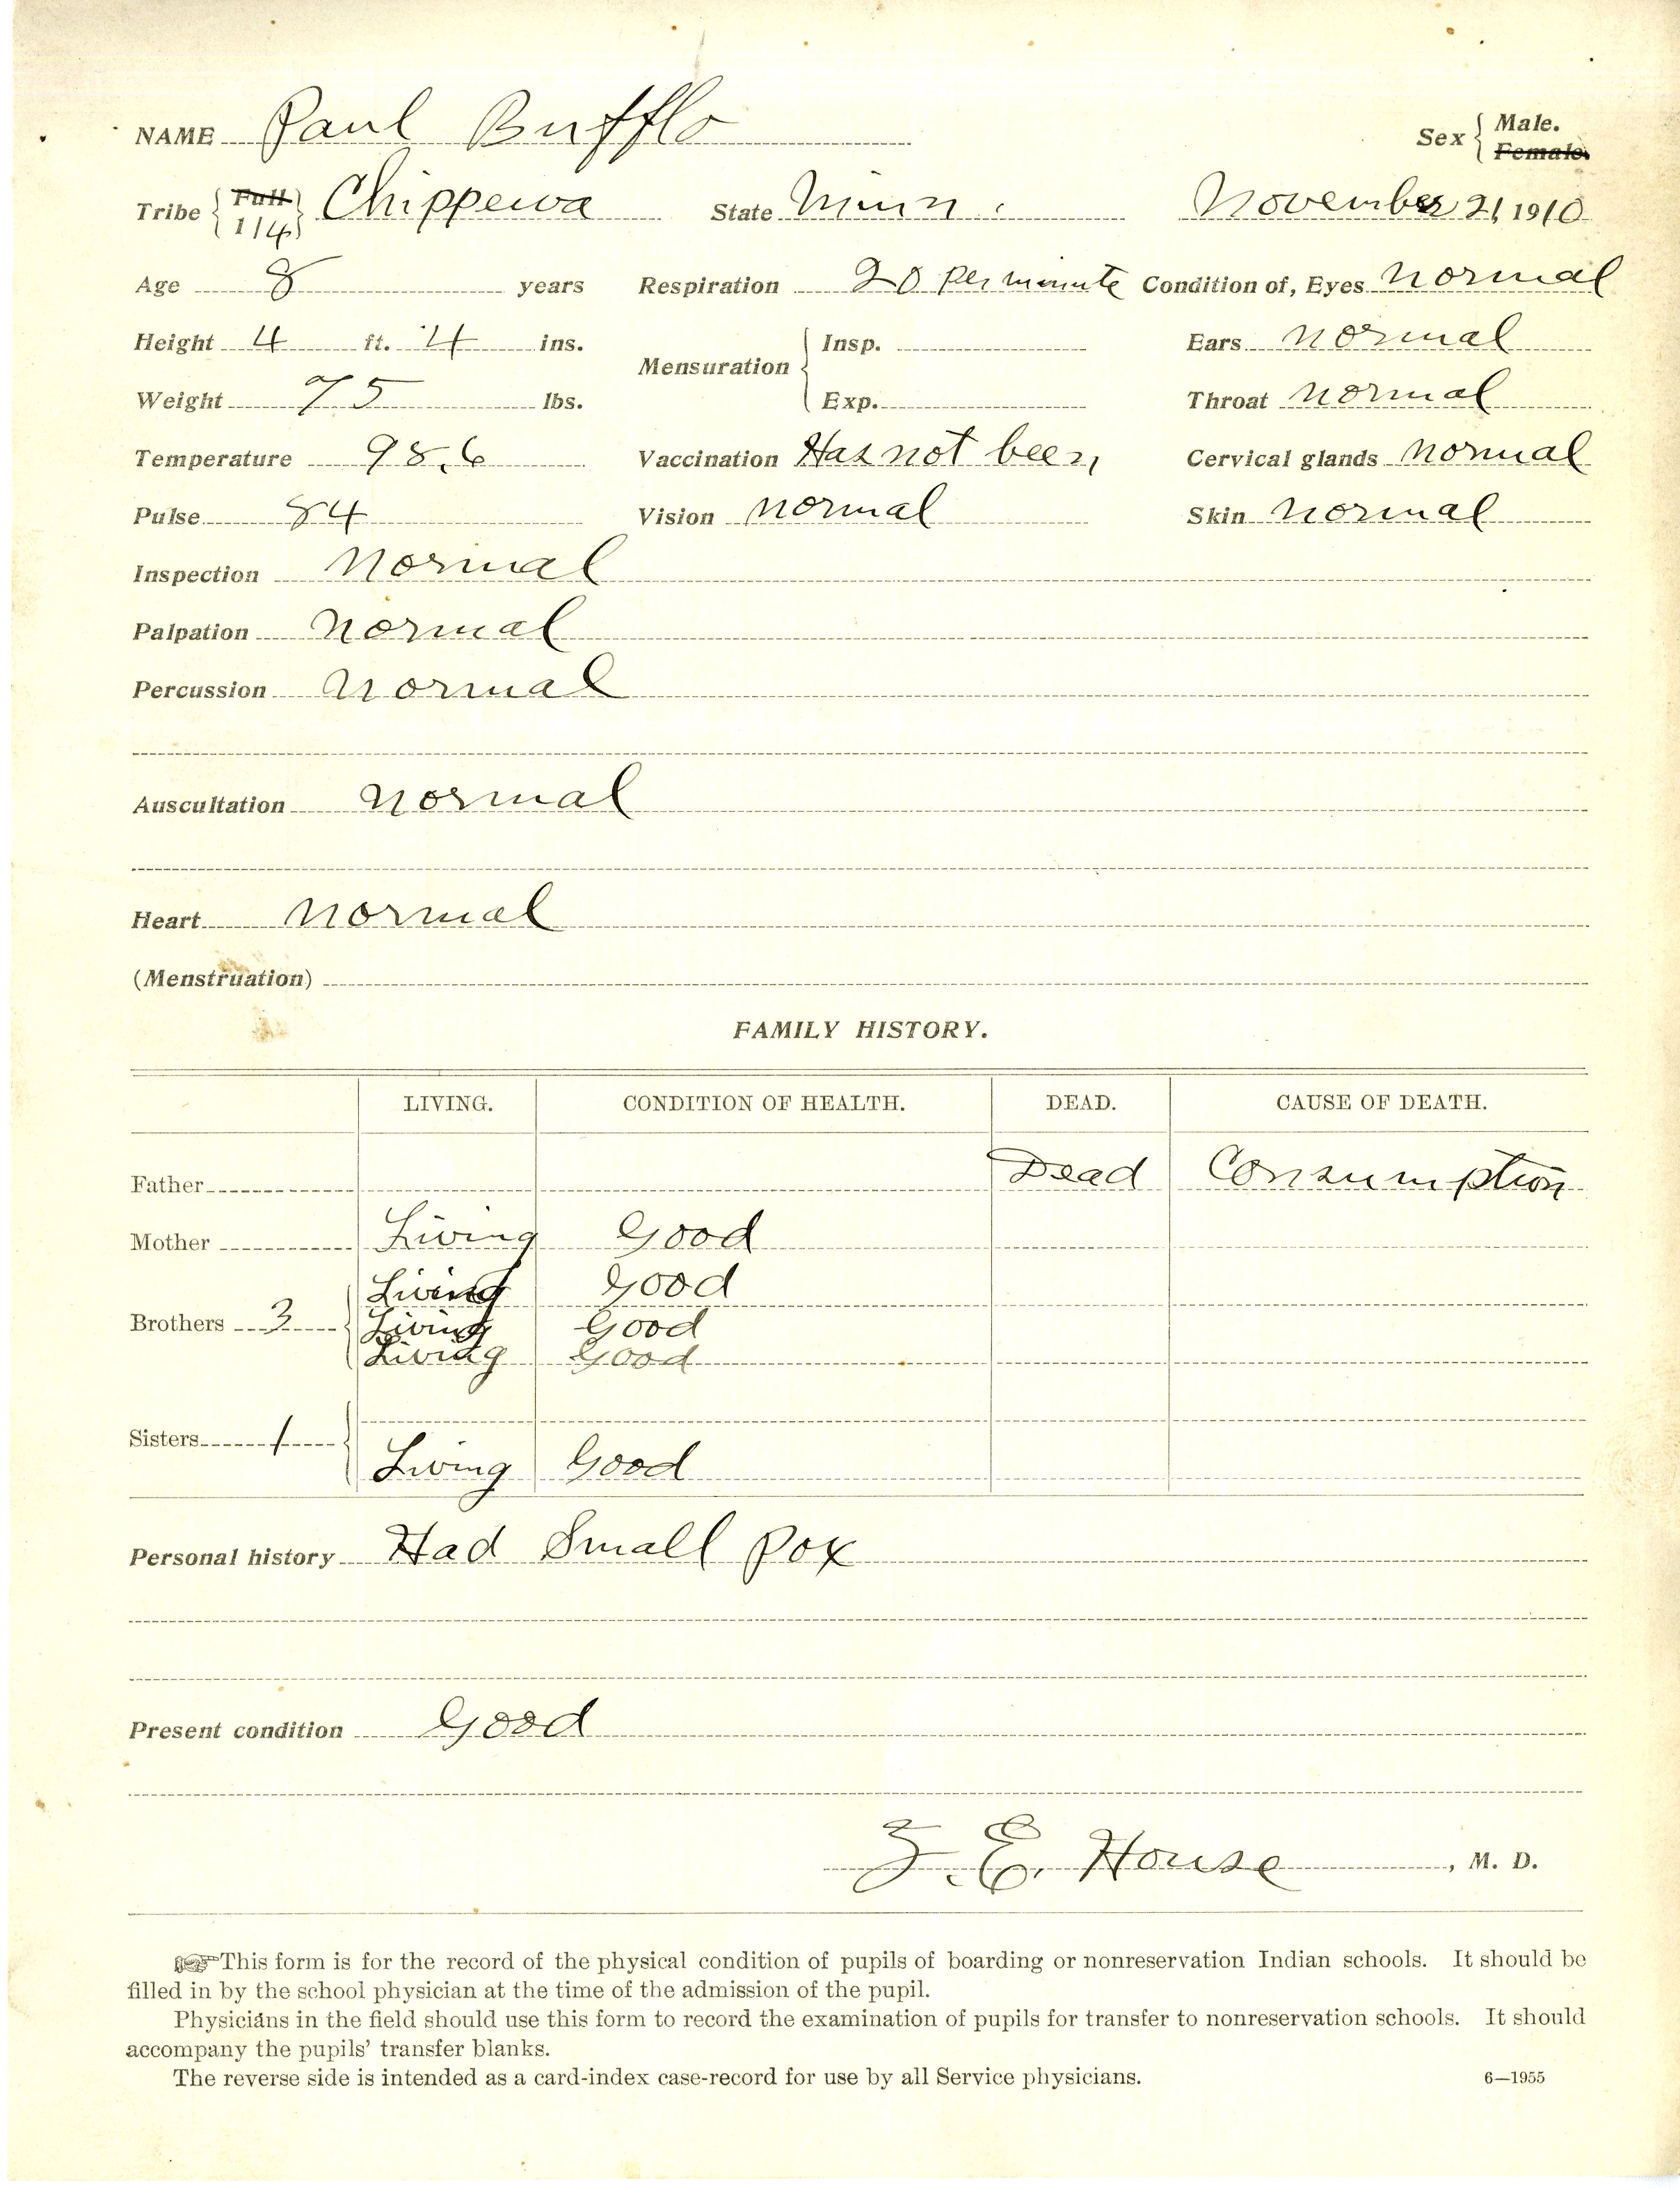 NAME Paul Bufflo Sex { Male. Female.
Tribe { Full 1/4 } Chippewa State Minn. November 21, 1910
Age 8 years Respiration 20 per minute Condition of, Eyes normal
Height 4 ft. 4 ins. Mensuration { Insp. Ears normal
Weight 75 lbs. Exp. Throat normal
Temperature 98.6 Vaccination Has not been Cervical glands normal
Pulse 84 Vision normal Skin normal
Inspection normal
Palpation normal
Percussion normal
Auscultation normal
Heart normal
(Menstruation)
FAMILY HISTORY.
LIVING. CONDITION OF HEALTH. DEAD. CAUSE OF DEATH.
Father Dead Consumption
Mother Living Good
Living Good
Brothers 3 { Living Good
Living Good
Sisters 1 {
Living Good
Personal history Had Small pox
Present condition Good
Z. E. House, M. D.
☞This form is for the record of the physical condition of pupils of boarding or nonreservation Indian schools. It should be
filled in by the school physician at the time of the admission of the pupil.
Physicians in the field should use this form to record the examination of pupils for transfer to nonreservation schools. It should
accompany the pupils' transfer blanks.
The reverse side is intended as a card-index case-record for use by all Service physicians. 6—1955